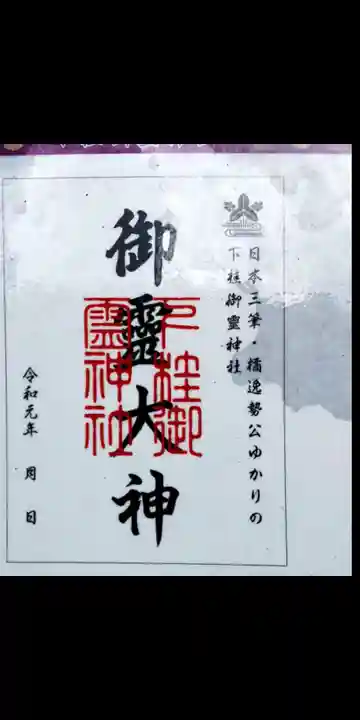 日本三筆・橘逸勢公ゆかりの
下桂御霊神社
御靈大神
下桂御
霊神社
令和元年　月　日